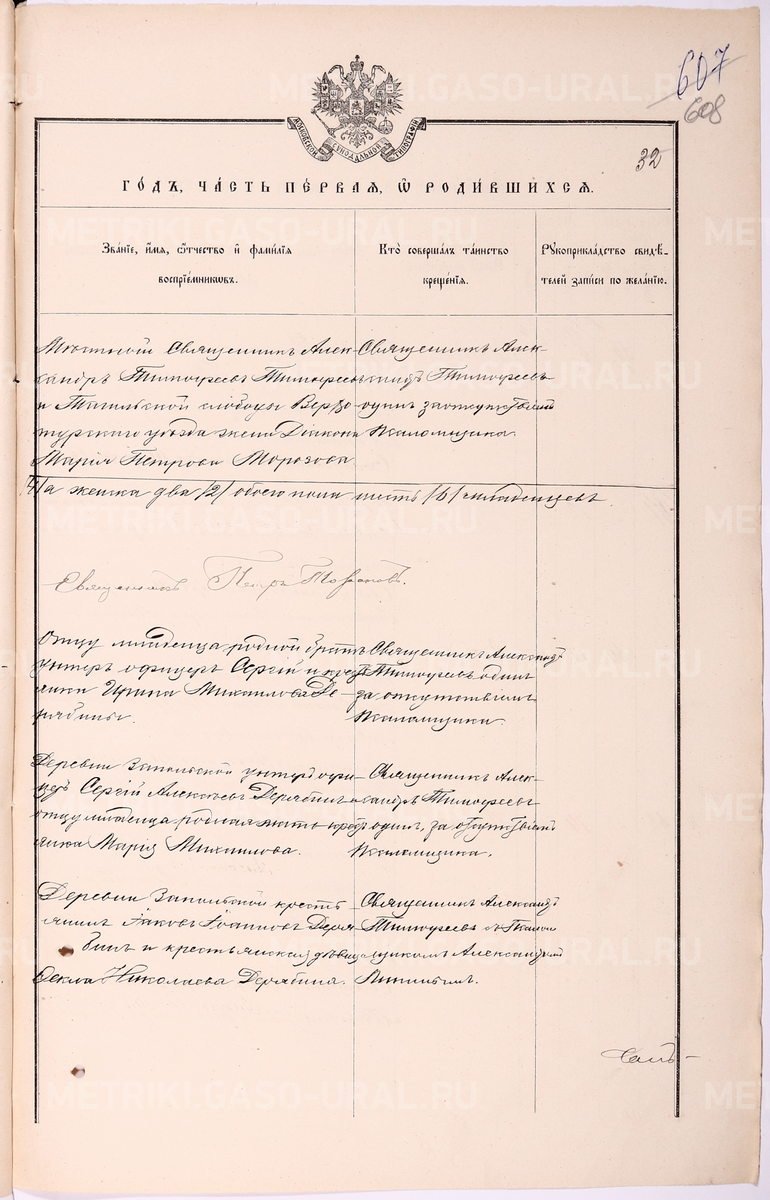 607
608
МОСКОВСКОЙ СѴНОДАЛЬНОЙ ТИПОГРАФІИ
32
ГОДЪ, ЧАСТЬ ПЕРВАЯ, Ѡ РОДИВШИХСЯ.
Званіе, имя, ѻтчество и фамилія
воспріемниковъ.
Кто совершалъ таинство
крещенія.
Рукоприкладство свидѣ-
телей записи по желанію.
Мѣстный Священникъ Алек-
сандръ Тимофеевъ Тимофеевъ
и Тагильской слободы Верхо-
турскаго уѣзда жена Діакона
Марія Петрова Морозова.
Священникъ Алек-
сандръ Тимофеевъ
одинъ за отсутствіемъ
псаломщика.
/4/ а женска два /2/ обоего пола шесть /6/ младенцевъ
Священникъ Петръ
Отцу младенца родной братъ
унтеръ офицеръ Сергій и крестья-
Ирина Михаилова Де-
рябины.
Священникъ Александръ
Тимофеевъ одинъ
за отсутствіемъ
псаломщика.
Деревни Запольской унтеръ офи-
церъ Сергій Алексѣевъ Дерябинъ и
отцу младенца родная мать крестья-
нка Марія Михаилова.
Священникъ Алек-
сандръ Тимофеевъ
одинъ, за отсутствіемъ
псаломщика.
Деревни Запольской кресть-
янинъ Іаковъ Іоанновъ Деря-
бинъ и крестьянская дѣвица
Ѳекла Николаева Дерябина.
Священникъ Александръ
Тимофеевъ съ псалом-
щикомъ Александромъ
METRIKI.GASO-URAL.RU